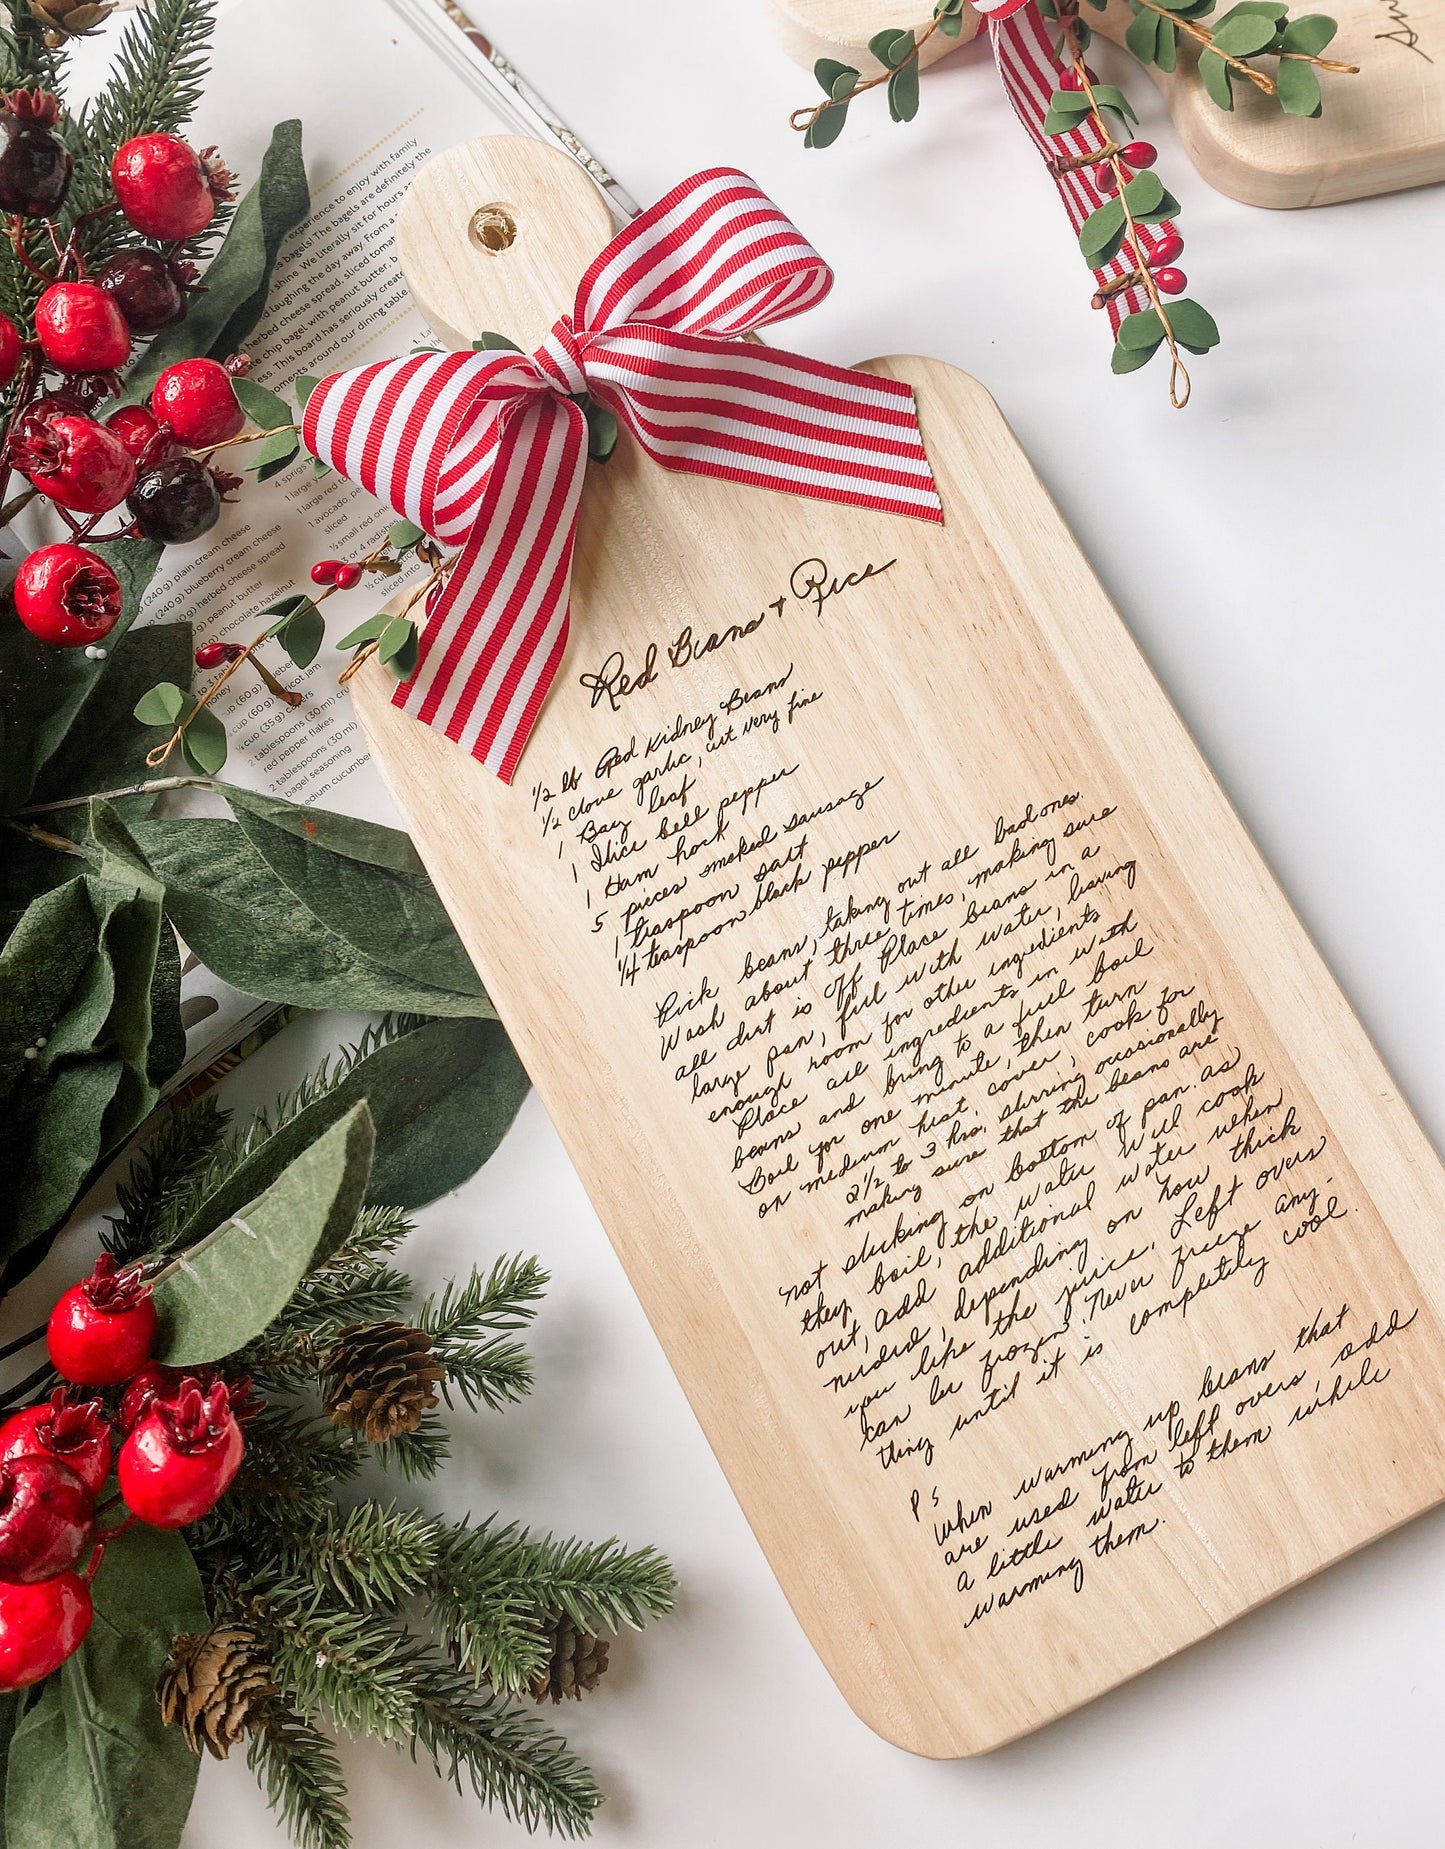 experience to enjoy with family
bagels! The bagels are definitely
shine. We literally sit for hours
laughing the day away. From a
herbed cheese spread, sliced tomat
chip bagel with peanut butter, b
ess. This board has seriously create
oments around our dining table.
4 sprigs
1 large
1 large red
1 avocado,
sliced
½ small red oni
3 or 4 radishes
½ cup
sliced into
(240 g) plain cream cheese
(240 g) blueberry cream cheese
(240 g) herbed cheese spread
peanut butter
chocolate hazelnut
honey
cup (60 g) blueberry
cup (60 g) apricot jam
¼ cup (35 g) capers
2 tablespoons (30 ml) cru
red pepper flakes
2 tablespoons (30 ml)
bagel seasoning
edium cucumber
Red Beans + Rice
1/2 lb Red Kidney Beans
1/2 clove garlic, cut very fine
1 Bay leaf
1 Slice bell pepper
1 Ham hock
5 pieces smoked sausage
1 teaspoon salt
1/4 teaspoon black pepper
Pick beans, taking out all bad ones.
Wash about three times, making sure
all dirt is off Place beans in a
large pan, fill with water, leaving
enough room for other ingredients
Place all ingredients in with
beans and bring to a full boil
Boil for one minute, then turn
on medium heat, cover, cook for
2 1/2 to 3 hrs. stirring occasionally
making sure that the beans are
not sticking on bottom of pan. As
they boil, the water will cook
out, add additional water when
needed, depending on how thick
you like the juice. Left overs
can be frozen. Never freeze any-
thing until it is completely cool.
PS
When warming up beans that
are used from left overs, add
a little water to them while
warming them.